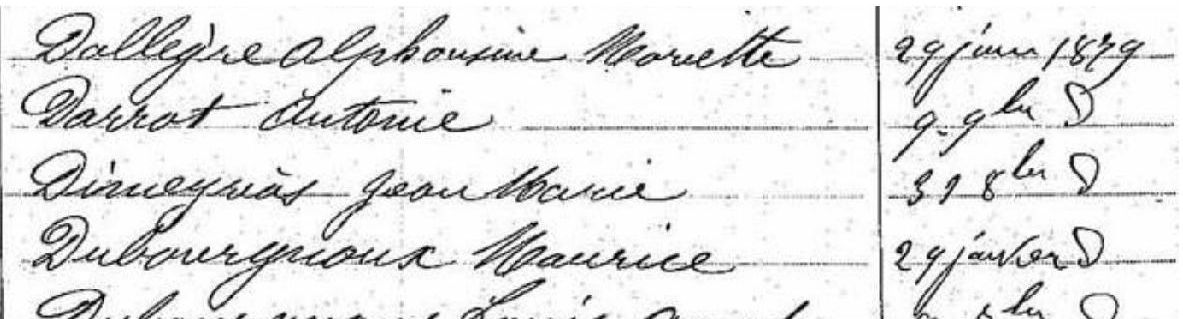 Dallegre Alphonsine Mariette 29 juin 1879
Darrot Antonie 9. 9bre d
Dimeyrias Jean Marie 31 8bre d
Dubourgnoux Maurice 29 janvier d
Louis